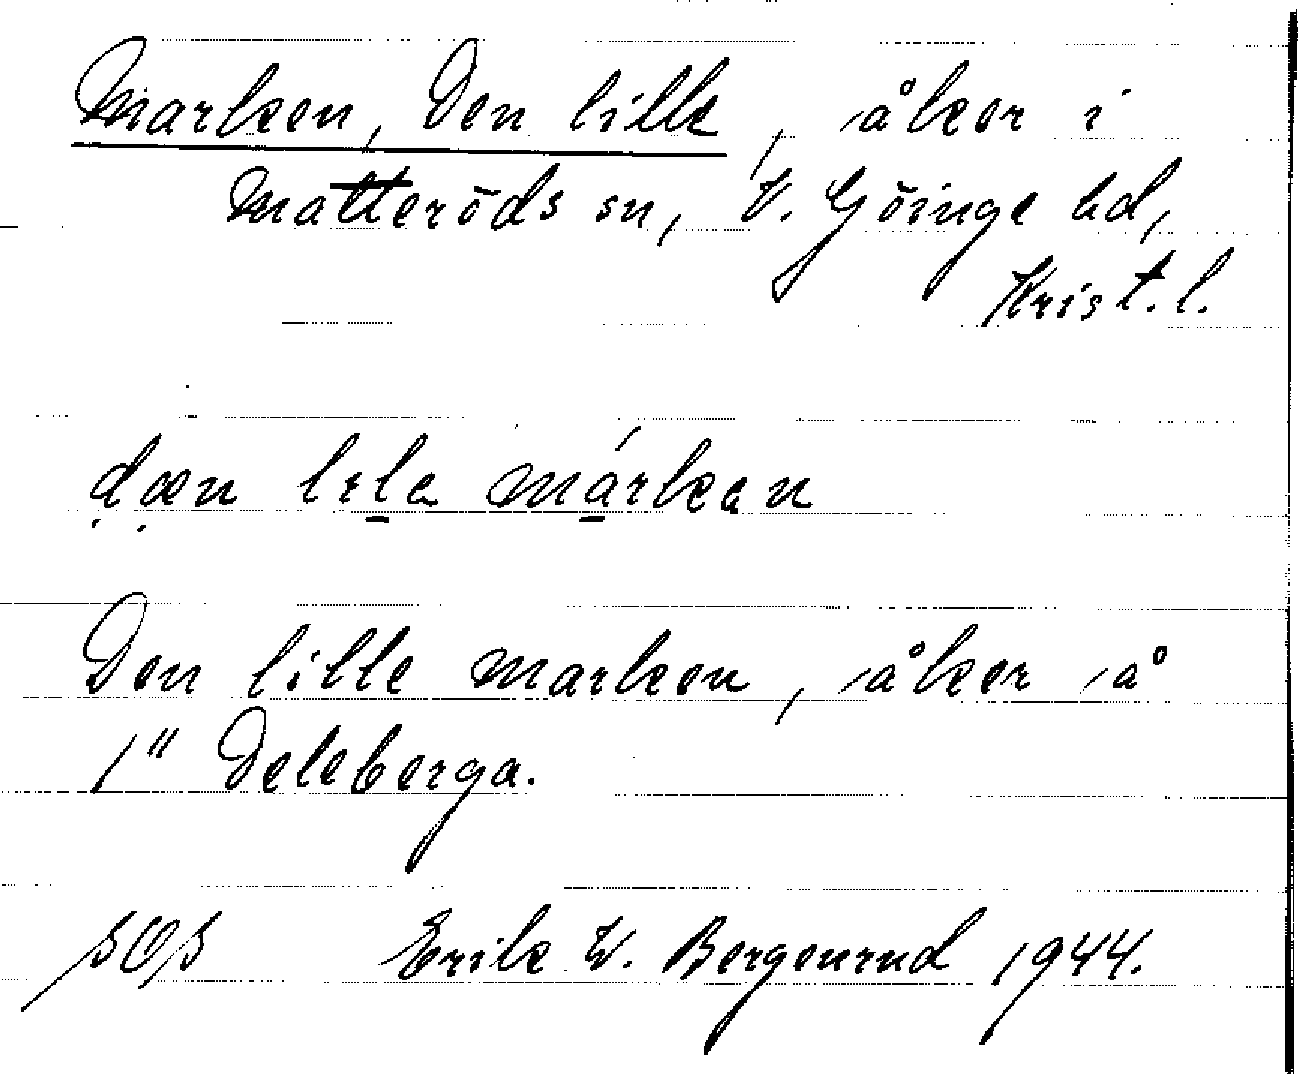 Marken, Den lille, åker i
Matteröds sn, V. Göinge hd,
Krist. l.
dæn lɪla márkan
Den lille marken, åker å
1" Deleberga.
SOS Erik W. Bergenrud 1944.